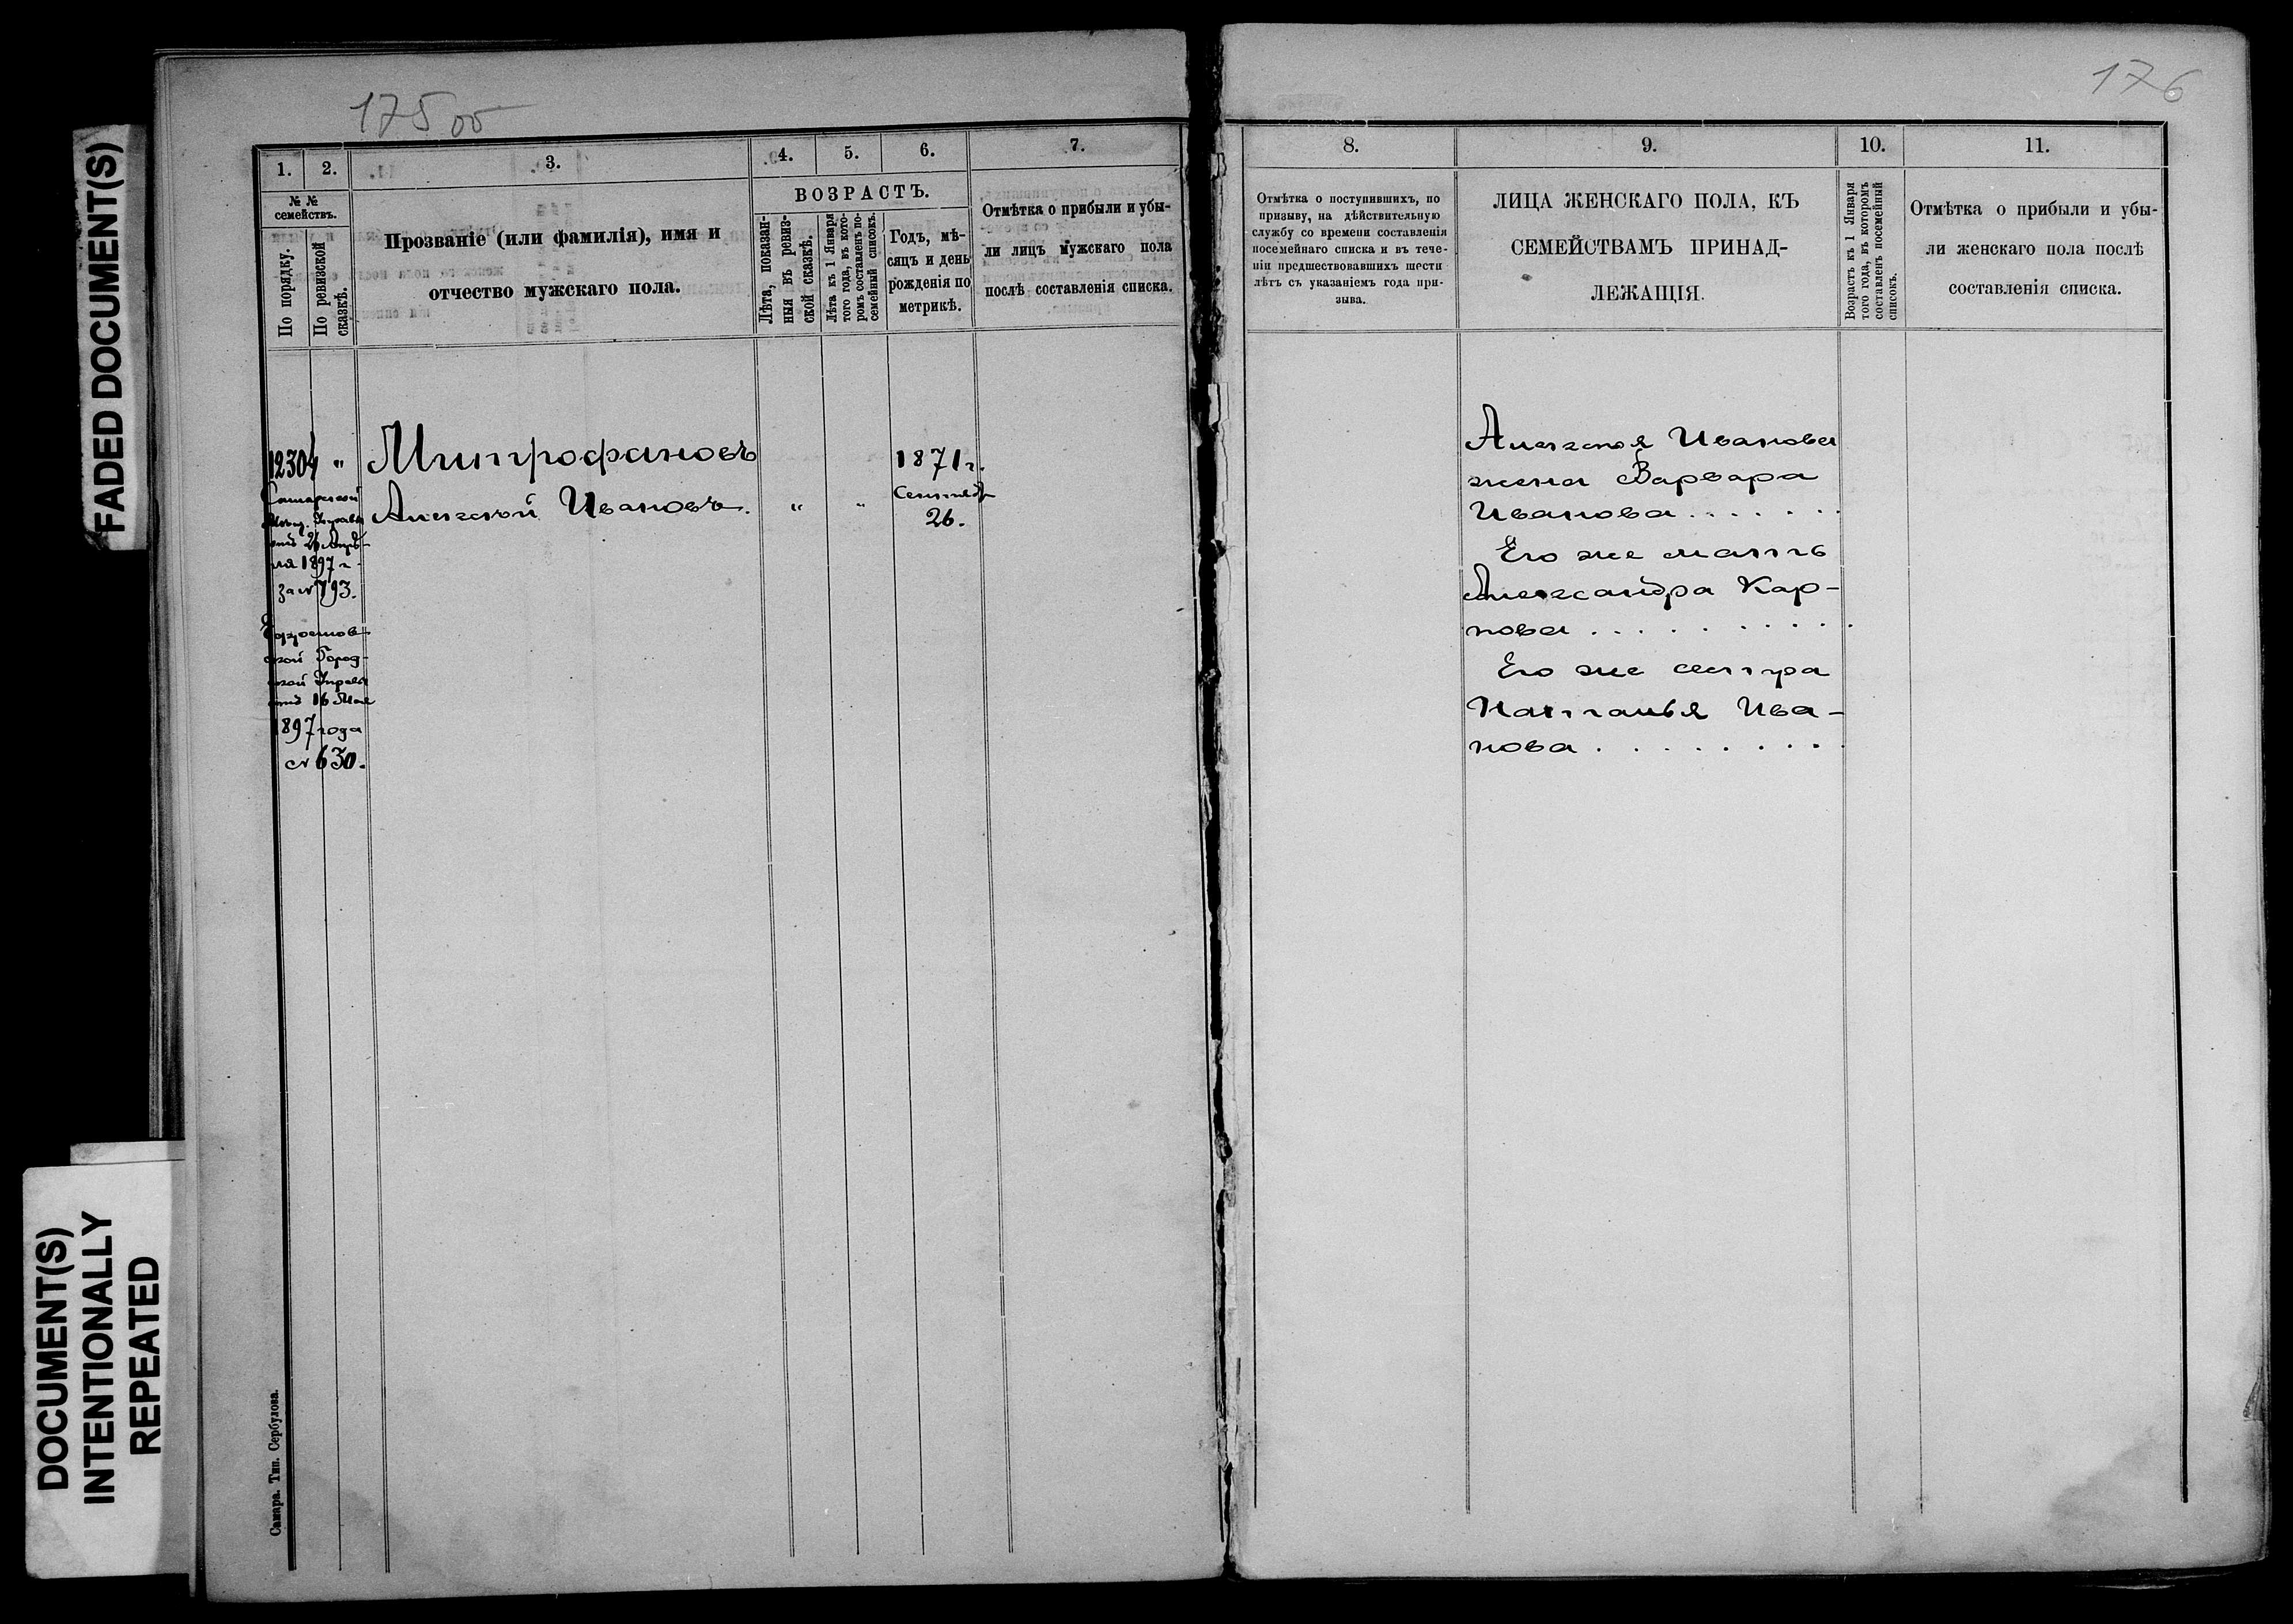 FADED DOCUMENT(S)
DOCUMENT(S)
INTENTIONALLY
REPEATED
175 об
1.
2.
3.
4.
5.
6.
7.
№ №
семействъ.
По порядку.
По ревизской
сказкѣ.
Прозваніе (или фамилія), имя и
отчество мужскаго пола.
ВОЗРАСТЪ.
Лѣта, показан-
ныя въ ревиз-
ской сказкѣ.
Лѣта къ 1 Января
того года, въ кото-
ромъ составленъ по-
семейный списокъ.
Годъ, мѣ-
сяцъ и день
рожденія по
метрикѣ.
Отмѣтка о прибыли и убы-
ли лицъ мужскаго пола
послѣ составленія списка.
12304 "
Самарской
Мѣщ. Управы
отъ 26 Апрѣ-
ля 1897 г.
за № 793.
ской Город-
ской Управы
отъ 16 Мая
1897 года
№ 630.
Митрофановъ
Алексѣй Ивановъ. " "
1871 г.
Сентября
26.
Самара. Тип. Сербулова.
176
8.
9.
10.
11.
Отмѣтка о поступившихъ, по
призыву, на дѣйствительную
службу со времени составленія
посемейнаго списка и въ тече-
ніи предшествовавшихъ шести
лѣтъ съ указаніемъ года при-
зыва.
ЛИЦА ЖЕНСКАГО ПОЛА, КЪ
СЕМЕЙСТВАМЪ ПРИНАД-
ЛЕЖАЩІЯ.
Возрастъ къ 1 Января
того года, въ которомъ
составленъ посемейный
списокъ.
Отмѣтка о прибыли и убы-
ли женскаго пола послѣ
составленія списка.
Алексѣя Иванова
жена Варвара
Иванова . . . . . . .
Его же мать
Александра Кар-
пова . . . . . . . . .
Его же сестра
Наталья Ива-
нова . . . . . . . . .